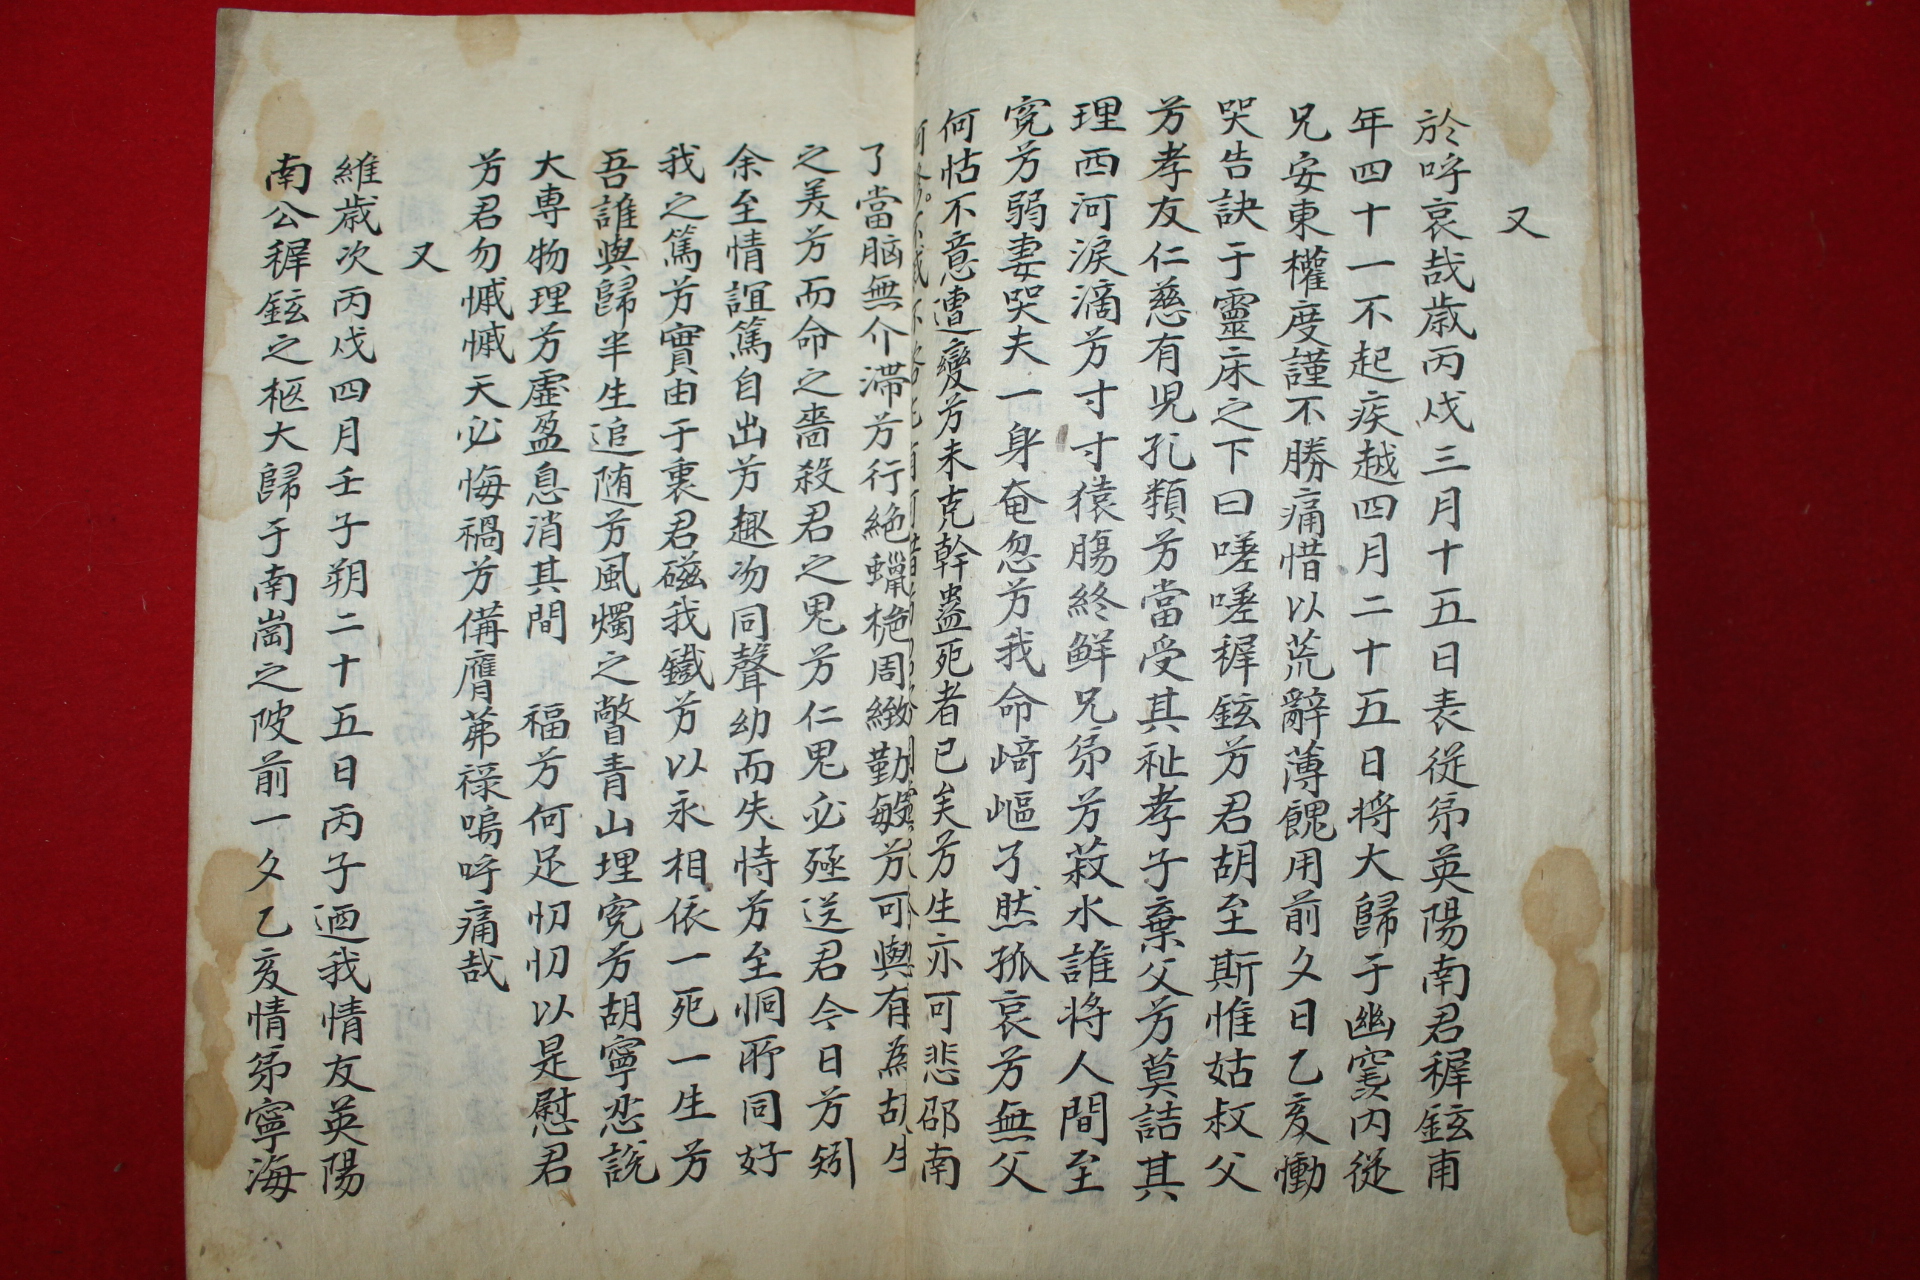 又
於呼哀哉歲丙戌三月十五日表從弟英陽南君穉鉉甫
年四十一不起疾越四月二十五日将大歸于幽窆內從
兄安東權度謹不勝痛惜以荒辭薄餽用前夕日乙亥慟
哭告訣于靈床之下曰嗟嗟穉鉉芳君胡至斯惟姑叔父
芳孝友仁慈有児孔類芳當受其祉孝子棄父芳莫詰其
理西河淚滴芳寸寸猿腸終鮮兄弟芳菽水誰将人間至
寃芳弱妻哭夫一身奄忽芳我命崎嶇孑然孤哀芳無父
何怙不意遭變芳未克幹蠱死者已矣芳生亦可悲邵南
了當脳無介滯芳行絶蠟栬周緻勤敏芳可與有為胡生
之美芳而命之嗇殺君之鬼芳仁鬼必殛送君今日芳矧
余至情誼篤自出芳趣沕同聲幼而失恃芳至恫所同好
我之篤芳實由于衷君磁我鐵芳以永相依一死一生芳
吾誰與歸半生追随芳風燭之瞥青山埋寃芳胡寧忍說
大專物理芳虛盈息消其間 福芳何足忉忉以是慰君
芳君勿慽慽天必悔禍芳俻膺茀祿嗚呼痛哉
又
維歲次丙戌四月壬子朔二十五日丙子迺我情友英陽
南公穉鉉之柩大歸于南崗之陂前一夕乙亥情弟寧海